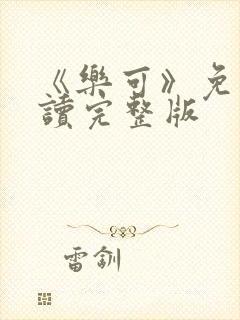 《樂可》免
讀完整版
雷釗